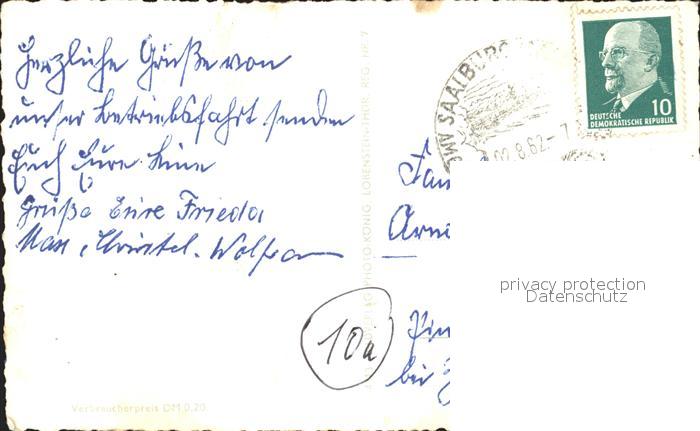 Herzliche Grüße von
unser Betriebsfahrt senden
Euch Eure
Grüße Eure Frieda
Max, Christel. Wolfram
10a
Verbraucherpreis DM 0,20
PHOTO-KÖNIG, LOBENSTEIN THÜR. REG. NR. 7
SAALBURG
02.8.62-7
DEUTSCHE
DEMOKRATISCHE REPUBLIK
10
Fam
bei
privacy protection
Datenschutz